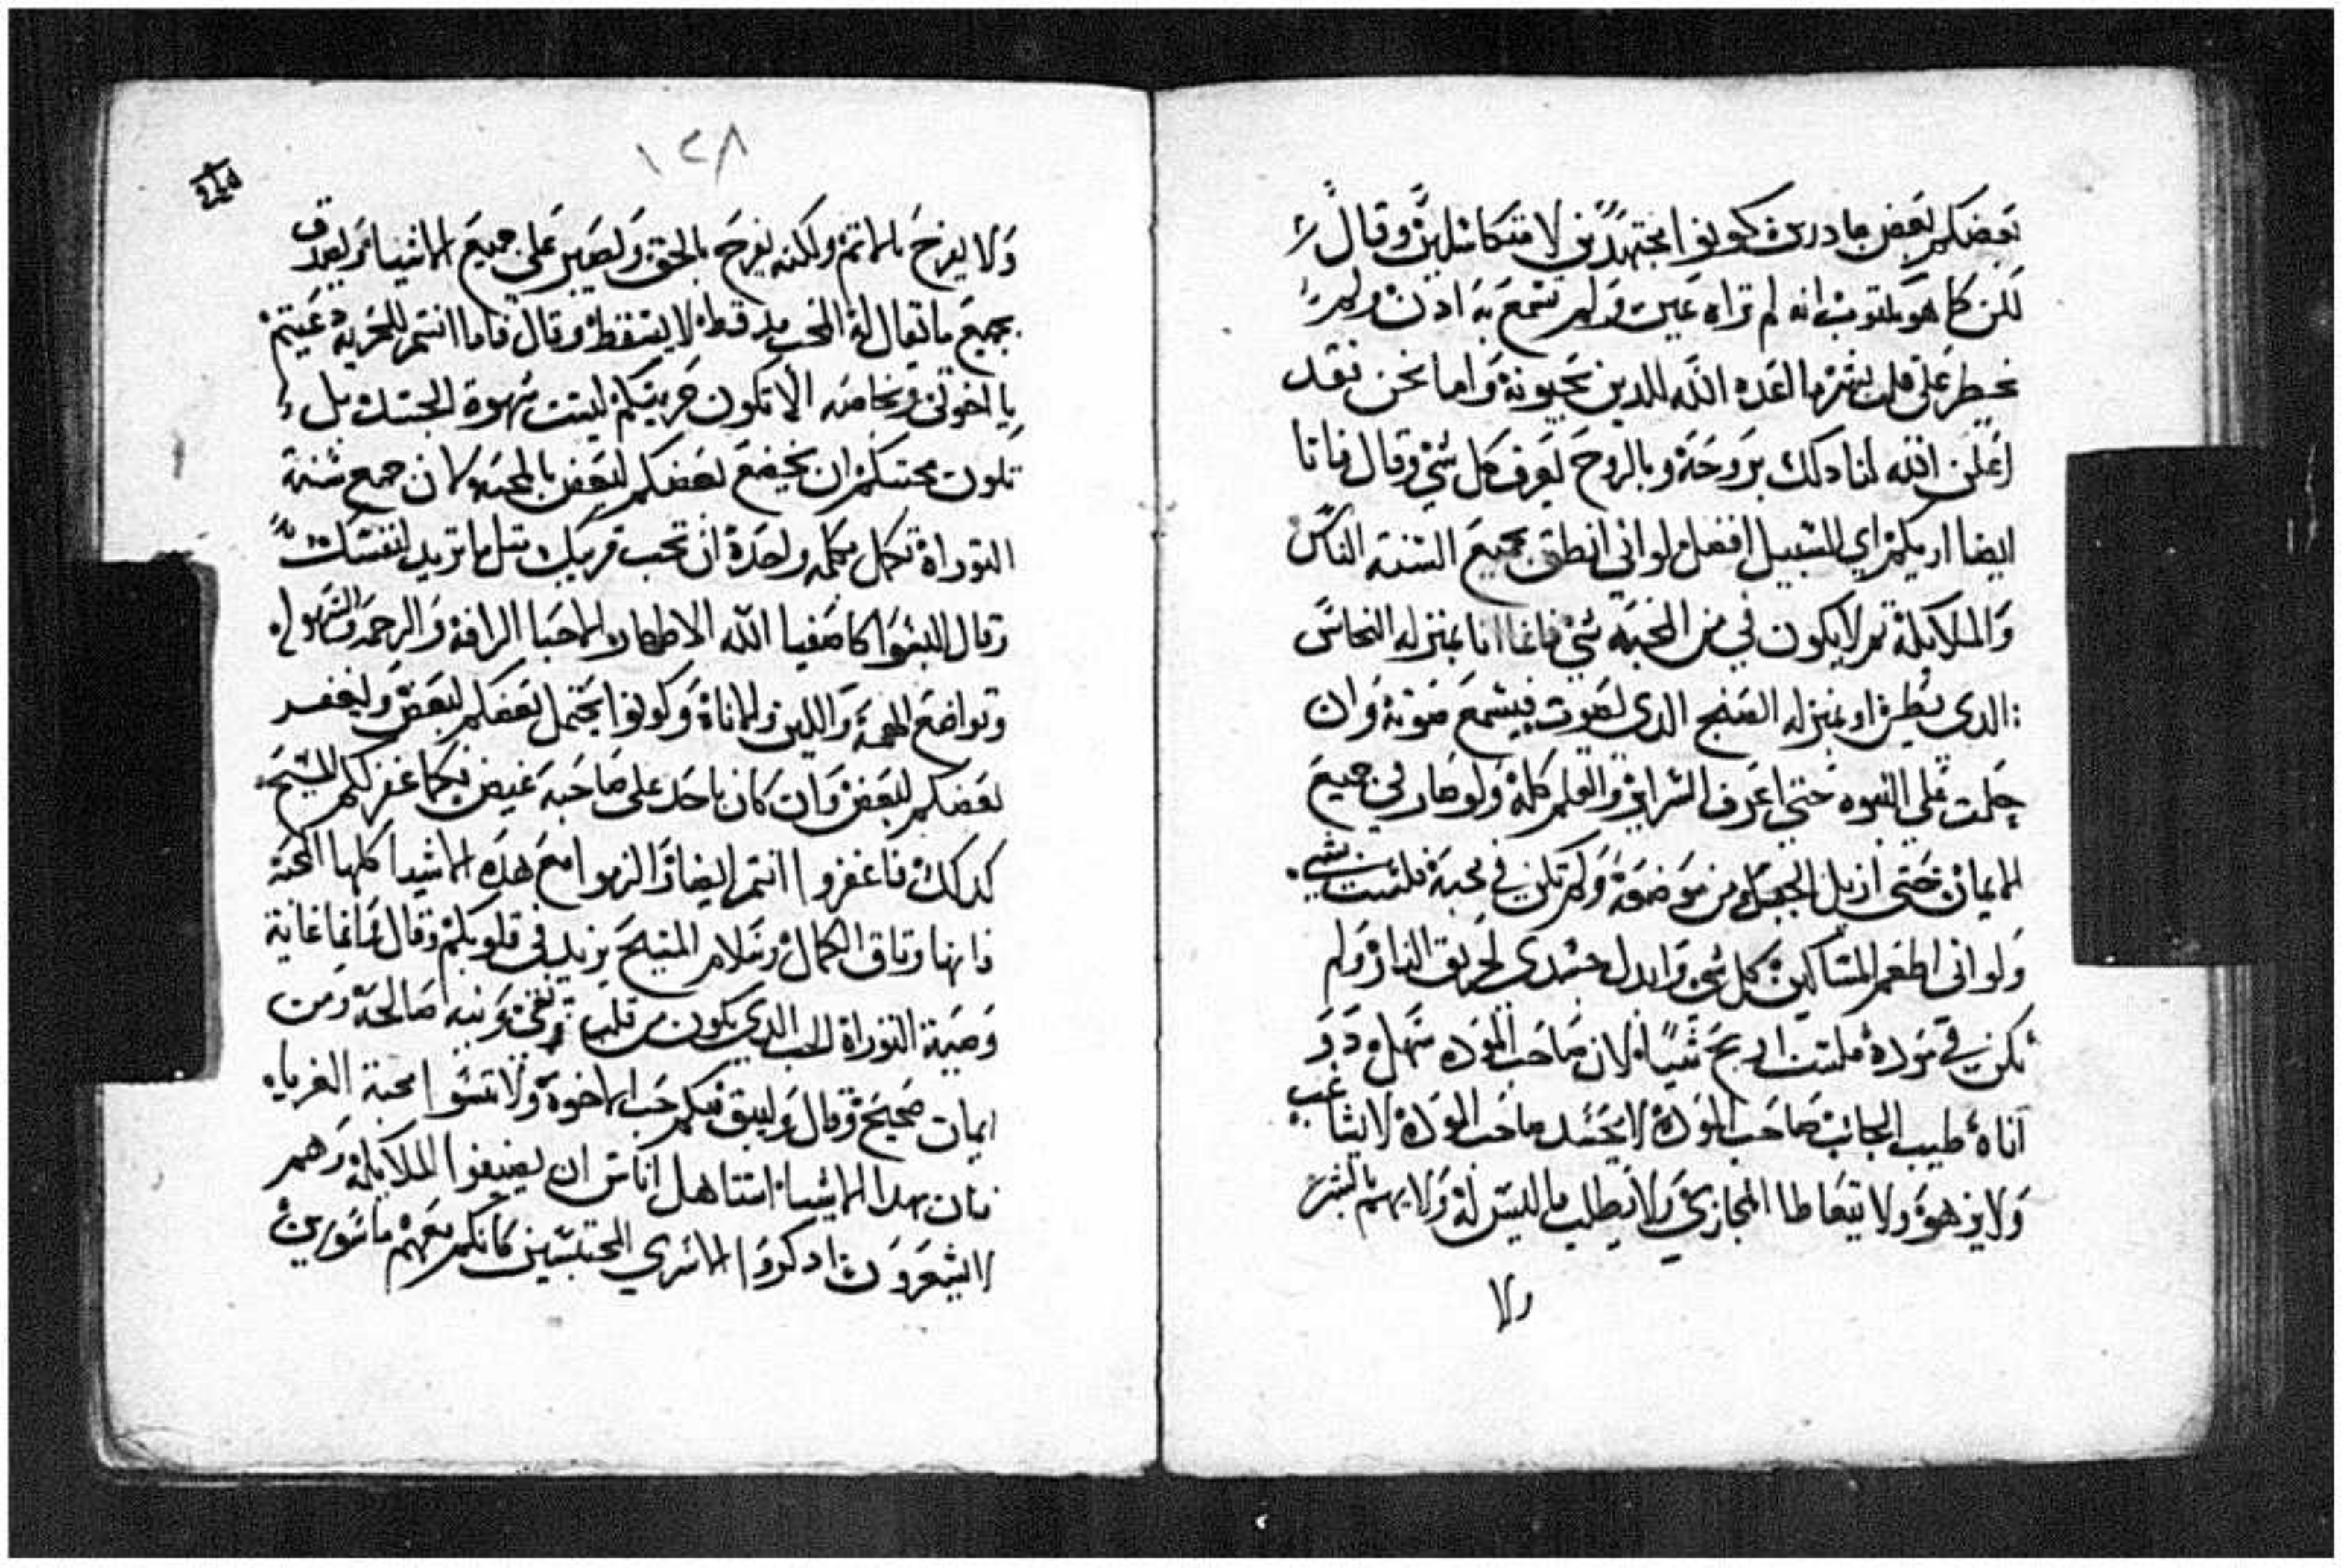 بعضكم لبعض مبادرين كونوا مجتهدين لا متكاسلين وقال
لكن كما هو مكتوب انه لم تراه عين ولم تسمع به اذن ولم
يخطر على قلب بشر ما اعده الله للدين يحبونه واما نحن فقد
اعلن الله لنا دلك بروحه وبالروح يعرف كل شي وقال فانا
ايضا اريكم اي السبيل افضل لو اني انطق بجميع السنة الناس
والملايكة ثم لا يكون في من المحبه شي فانما انا بمنزله النحاس
الدى يطن او بمنزله الصنج الدى يصوت فيسمع صوته وان
حلت على النبوه حتى اعرف السراير والعلم كله ولو صار لي جميع
الايمان حتى ازيل الجبل من موضعه ولم تكن في محبة فلست بشي
ولو اني اطعم المساكين كل شي وابدل جسدى لحريق النار ولم
تكن في موده فلست اربح شيا لان صاحب الموده سهل دو
اناه طيب الجانب صاحب الموده لا يحسد صاحب الموده لا يشاغب
ولا يزهوه ولا يتعاطا المخازي ولا يطلب ما ليس له ولا يهم بالشر
ولا
١٢٨
ولا يفرح بالاتم ولكنه يفرح بالحق ويصبر على جميع الاشياء ويصدق
بجميع ما يقال له الحب قط لا يسقط وقال فاما انتم للحريه دعيتم
يا اخوتى وبخاصه الا تكون حريتكم لسبب شهوة الجسد بل
تكون بمحبتكم ان يخضع بعضكم لبعض بالمحبه لان جميع سنة
التوراة تكمل بكلمه واحدة ان تحب قريبك متل ما تريد لنفسك
وقال البسوا كاصفيا الله الاطهار الاحبا الرافة والرحمة
وتواضع الهمة واللين والاناة وكونوا يحتمل بعضكم لبعض وليغفر
بعضكم لبعض وان كان باحد على صاحبه غيض فكما غفر لكم المسيح
كدلك فاغفروا انتم ايضا والزموا مع هده الاشيا كلها المحبة
فانها وتاق الكمال وسلام المسيح يزيد في قلوبكم وقال وانما غاية
وصية التوراة الحب الدي يكون من قلب نقى ونيه صالحة ومن
ايمان صحيح وقال وليبق فيكم حب الاخوة ولا تنسوا محبة الغرباء
فان بهدا الاشياء استاهل اناس ان يضيفوا الملايكة وهم
لا يشعرون ادكروا الاسرى المحتبسين كانكم معهم ماسورين